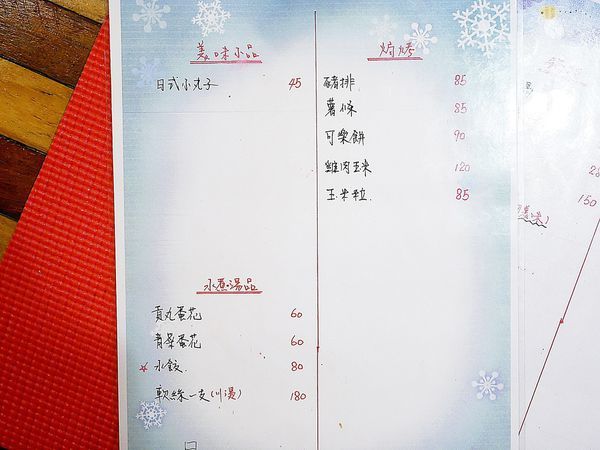 美味小品
日式小丸子 45
水煮湯品
貢丸蛋花 60
青菜蛋花 60
☆水餃 80
軟絲一支(川燙) 180
焗烤
豬排 85
薯條 85
可樂餅 90
雞肉玉米 120
玉米粒 85
150